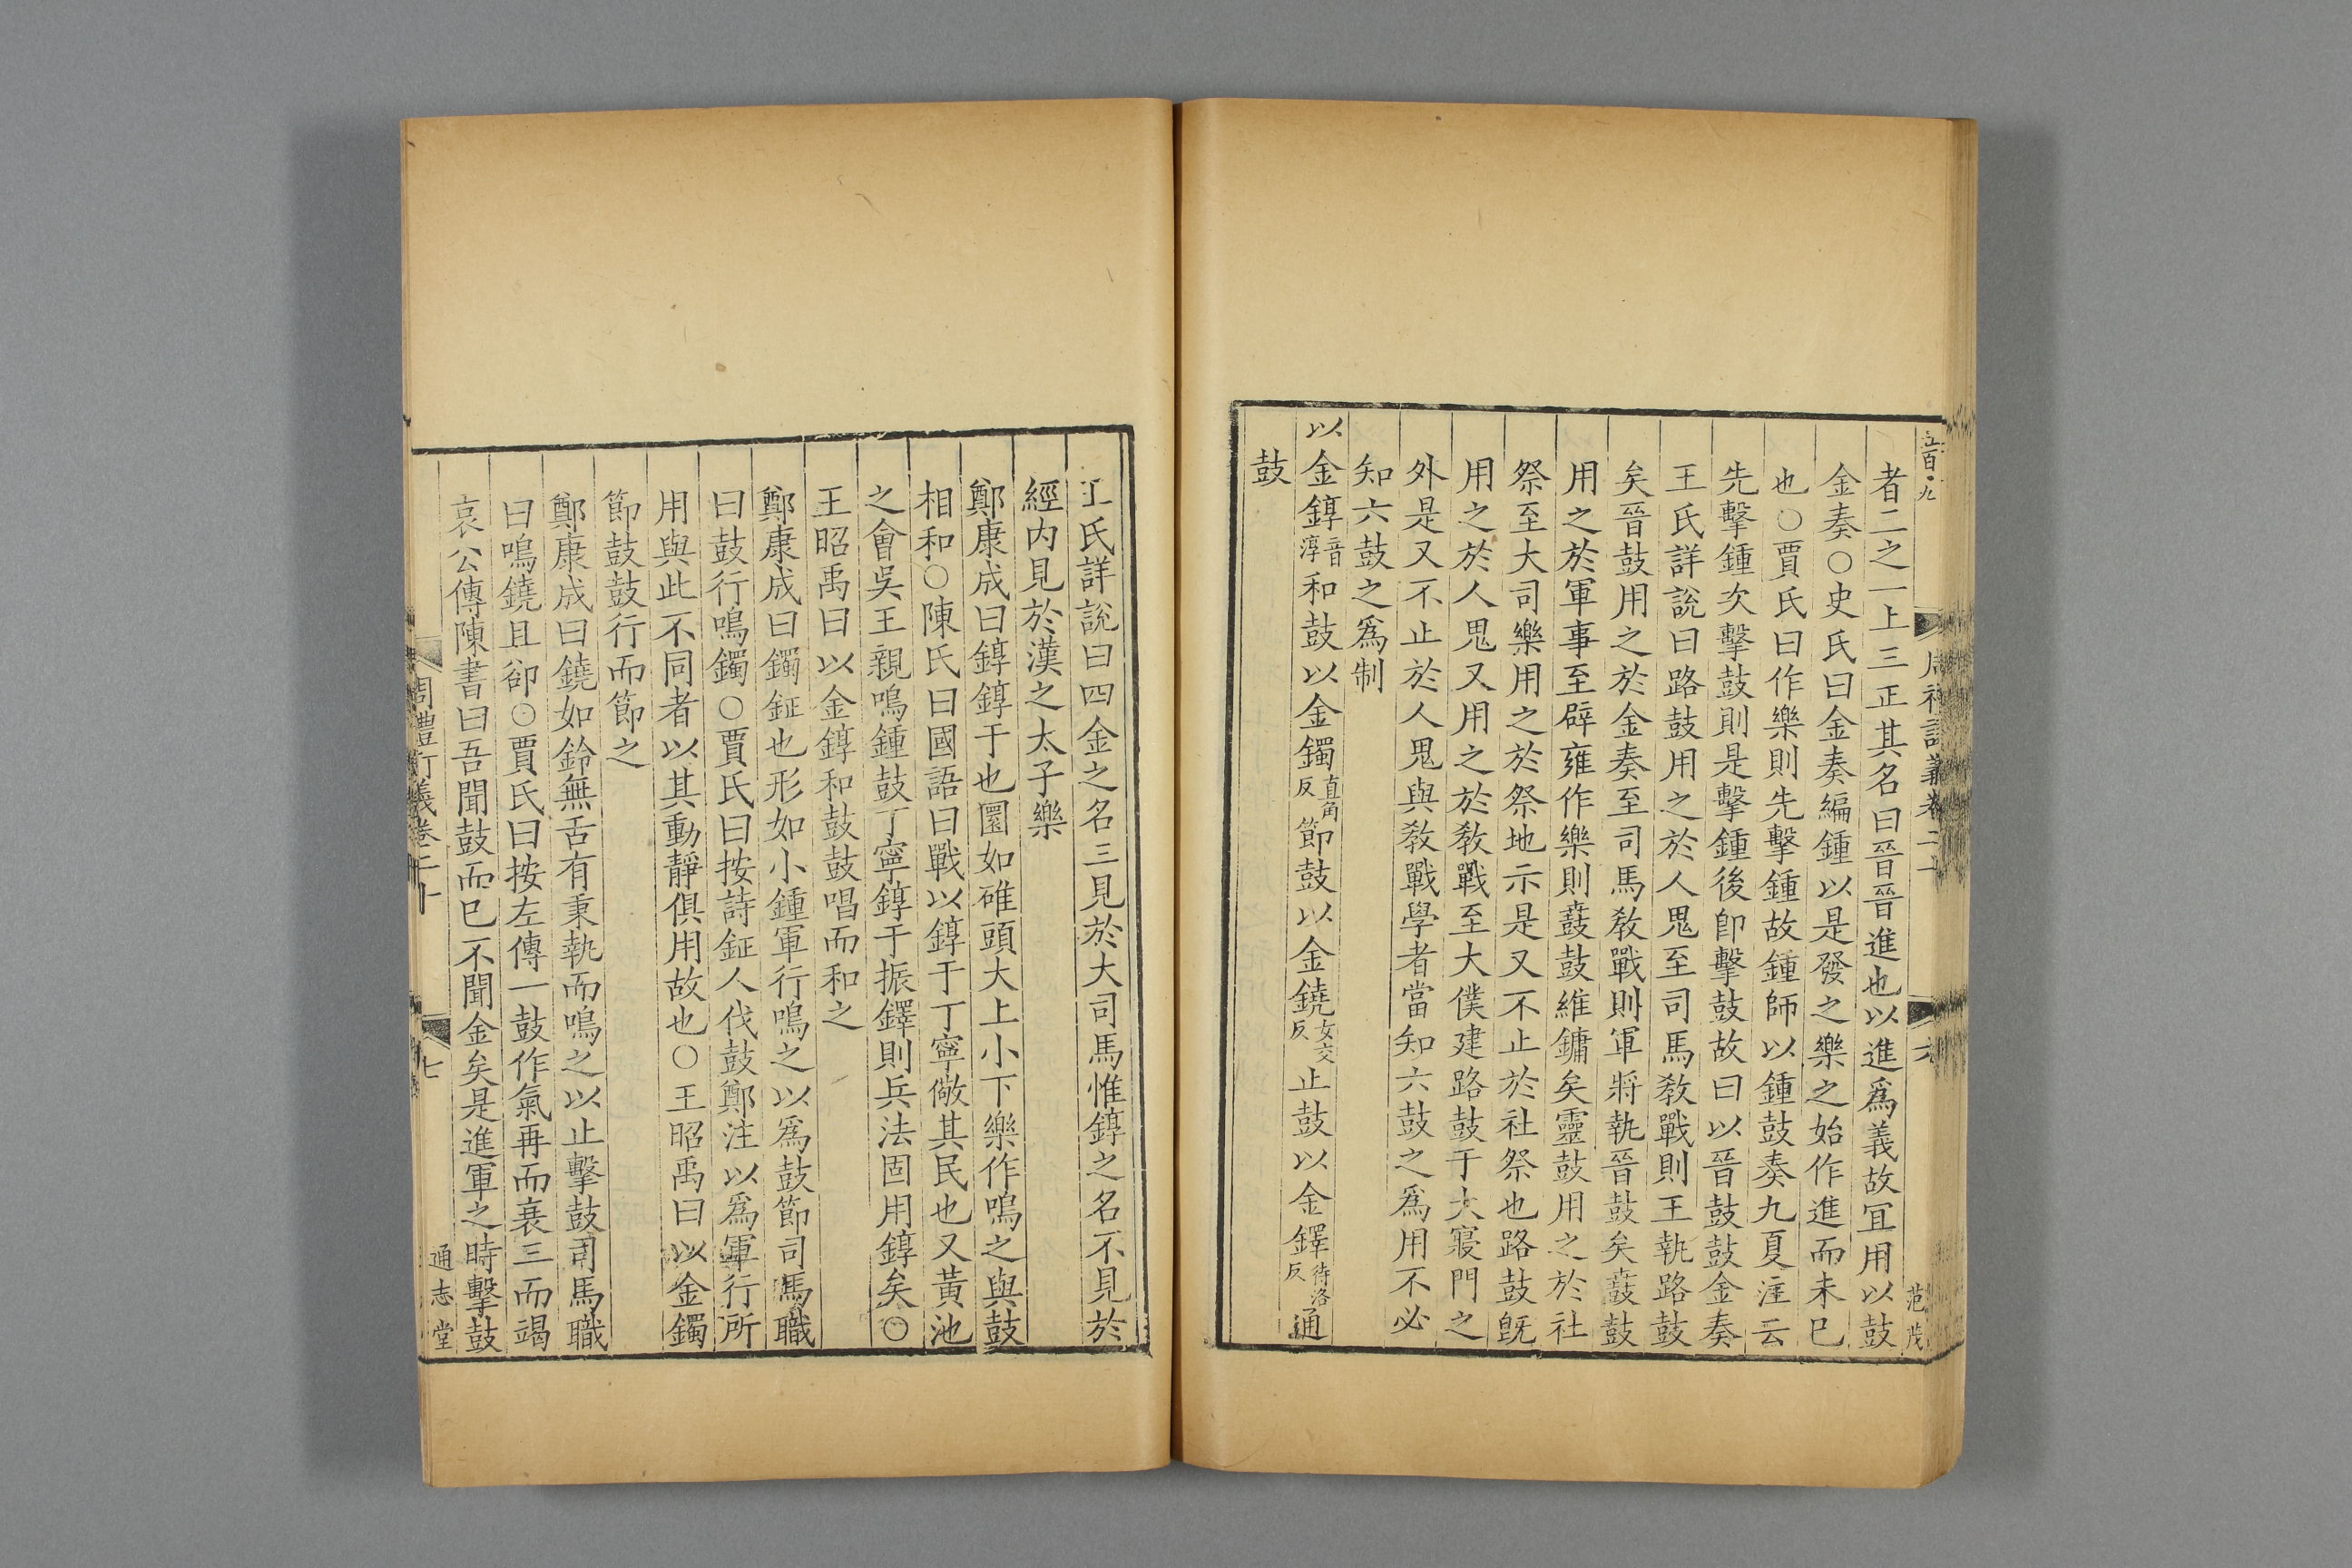 者二之一上三正其名曰晉晉進也以進爲義故宜用以鼓
金奏○史氏曰金奏編鍾以是發之樂之始作進而未已
也○賈氏曰作樂則先擊鍾故鍾師以鍾鼓奏九夏注云
先擊鍾次擊鼓則是擊鍾後卽擊鼓故曰以晉鼓鼓金奏
王氏詳說曰路鼓用之於人鬼至司馬敎戰則王執路鼓
矣晉鼓用之於金奏至司馬敎戰則軍將執晉鼓矣鼖鼓
用之於軍事至辟雍作樂則鼖鼓維鏞矣靈鼓用之於社
祭至大司樂用之於祭地示是又不止於社祭也路鼓旣
用之於人鬼又用之於敎戰至大僕建路鼓于大寢門之
外是又不止於人鬼與敎戰學者當知六鼓之爲用不必
知六鼓之爲制
以金錞音淳和鼓以金鐲直角反節鼓以金鐃女交反止鼓以金鐸待洛反通
鼓
范茂
六
王氏詳說曰四金之名三見於大司馬惟錞之名不見於
經内見於漢之太子樂
鄭康成曰錞錞于也圜如碓頭大上小下樂作鳴之與鼓
相和○陳氏曰國語曰戰以錞于丁寧儆其民也又黃池
之會吳王親鳴鍾鼓丁寧錞于振鐸則兵法固用錞矣○
王昭禹曰以金錞和鼓鼓唱而和之
鄭康成曰鐲鉦也形如小鍾軍行鳴之以爲鼓節司馬職
曰鼓行鳴鐲○賈氏曰按詩鉦人伐鼓鄭注以爲軍行所
用與此不同者以其動靜俱用故也○王昭禹曰以金鐲
節鼓鼓行而節之
鄭康成曰鐃如鈴無舌有秉執而鳴之以止擊鼓司馬職
曰鳴鐃且卻○賈氏曰按左傳一鼓作氣再而衰三而竭
哀公傳陳書曰吾聞鼓而已不聞金矣是進軍之時擊鼓
周禮訂義卷二十
七
通志堂